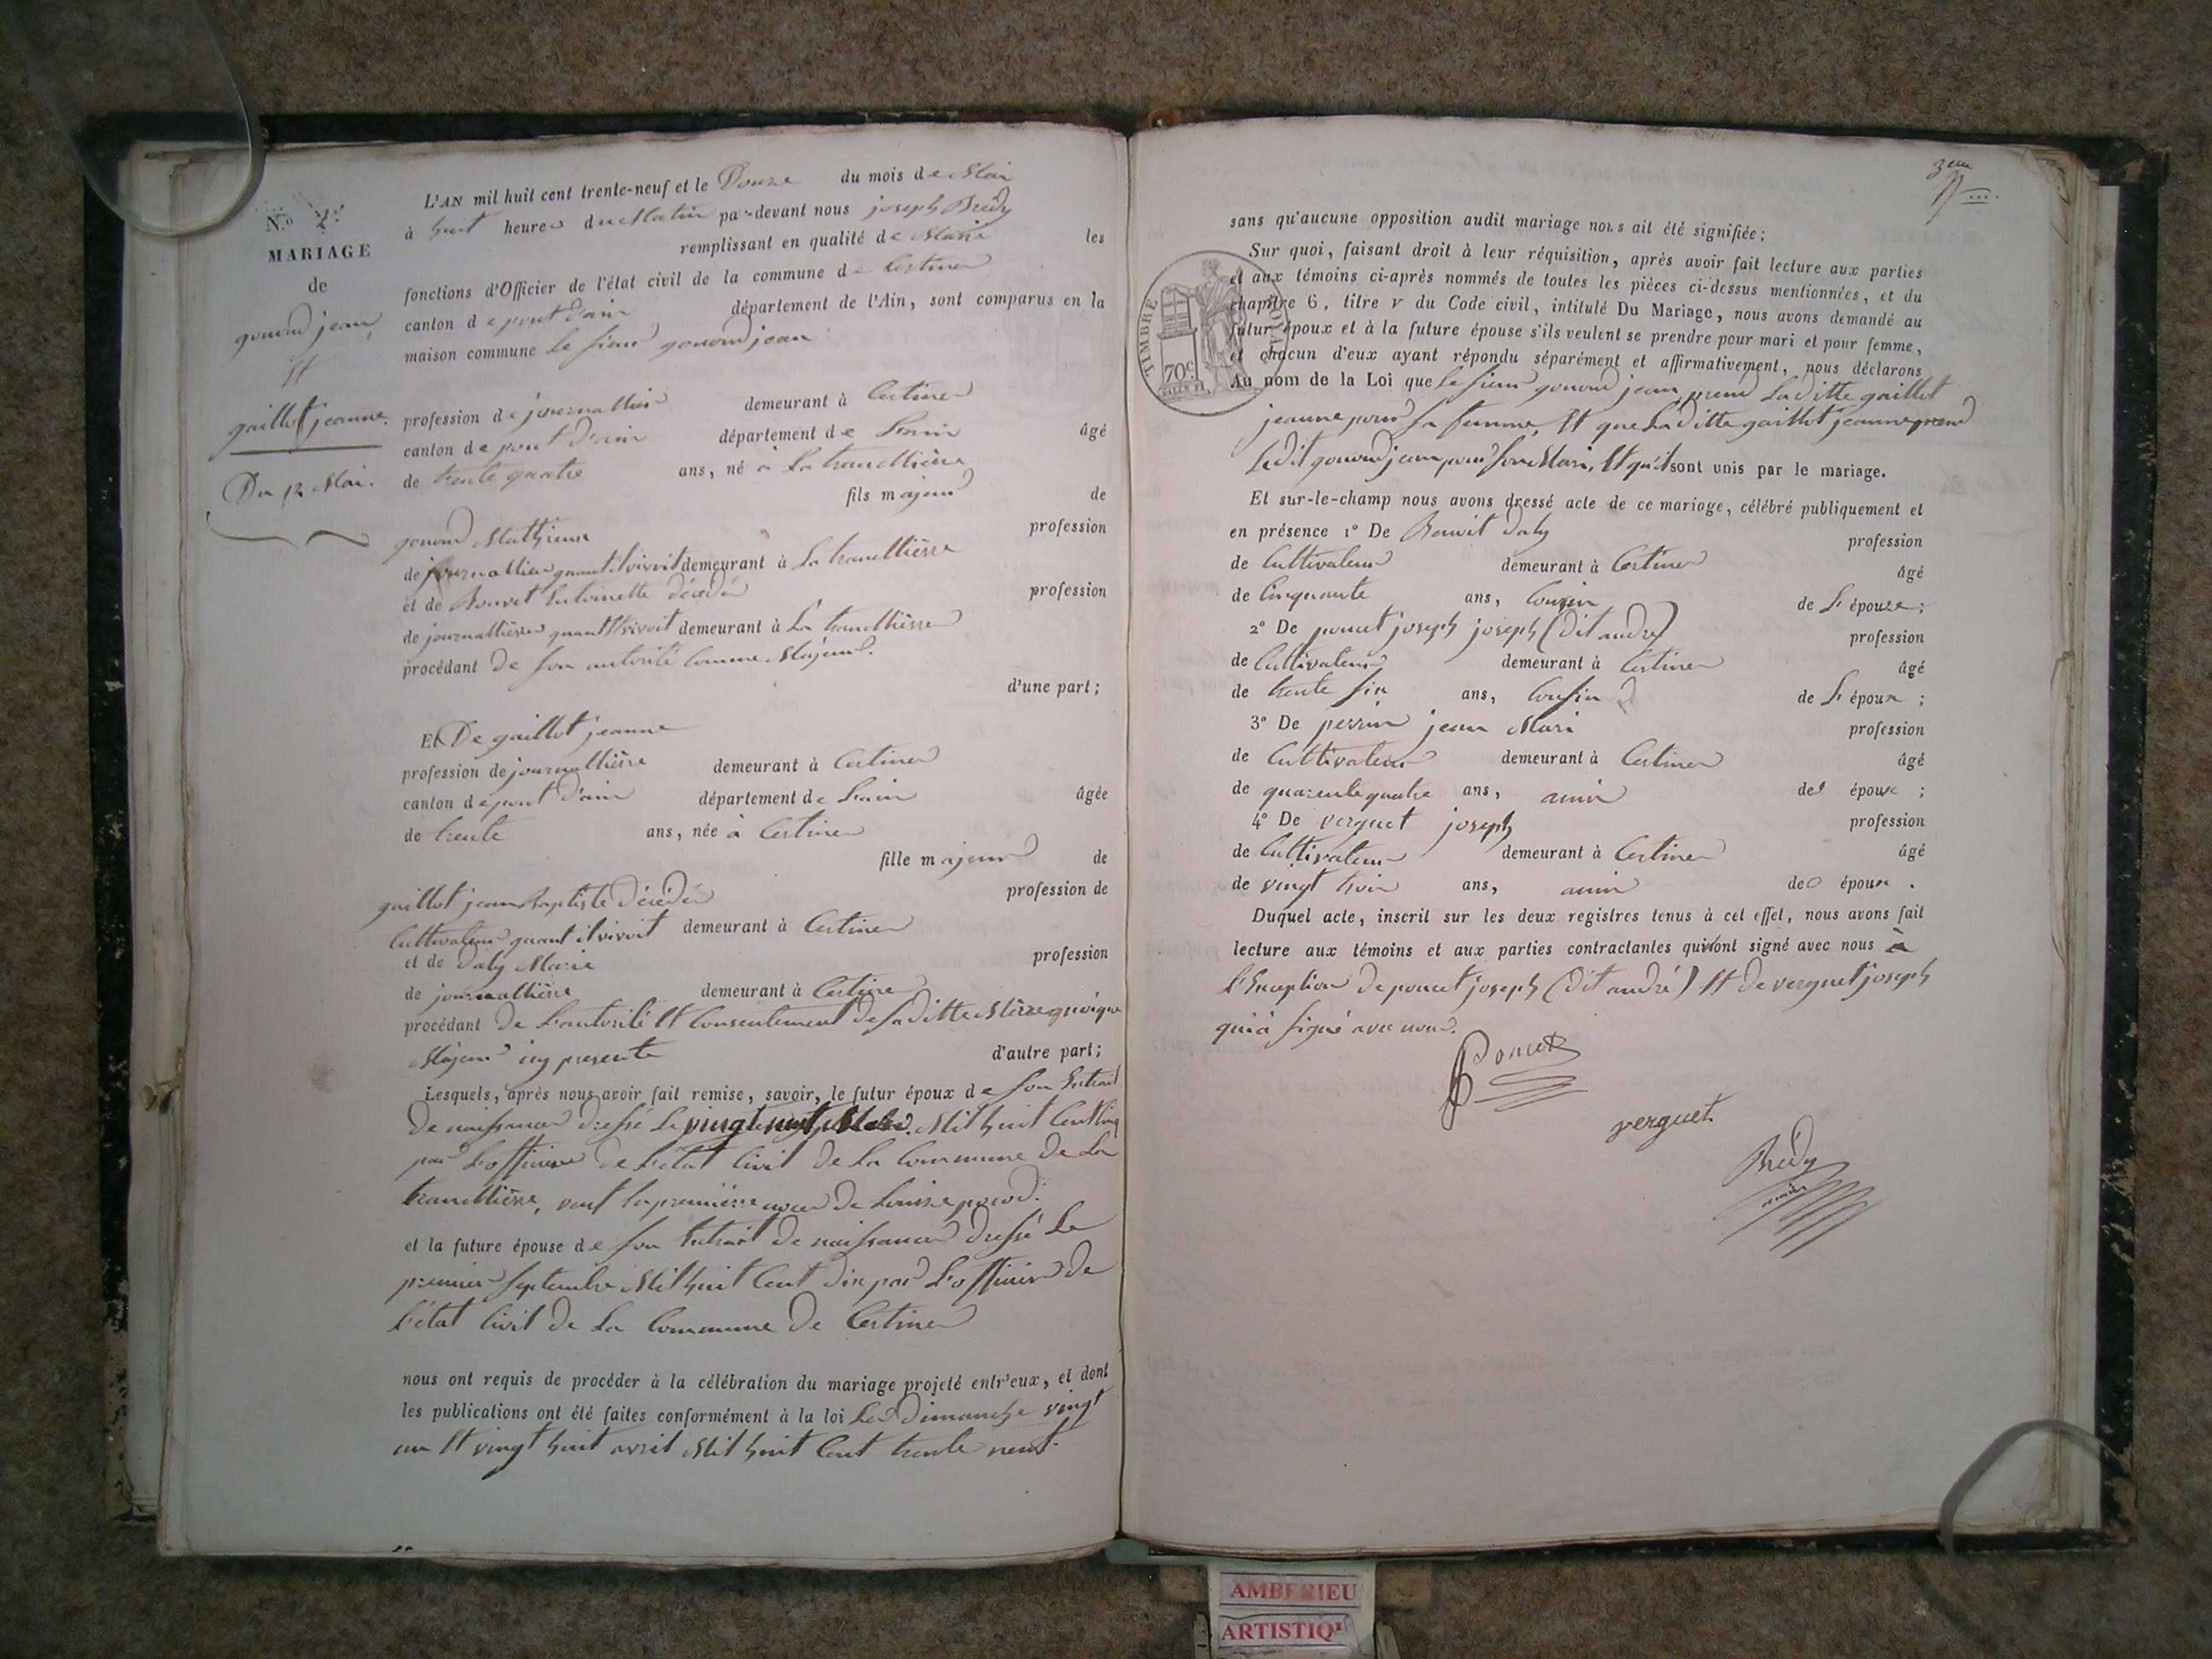 N.o 2.
MARIAGE
de
gonond jean,
Et
gaillot jeanne.
Du 12 Mai.
L'AN mil huit cent trente-neuf et le Douze du mois de Mai
à huit heures du Matin par-devant nous joseph Brédy
remplissant en qualité de Maire les
fonctions d'Officier de l'état civil de la commune de Certines
canton de pont d'ain département de l'Ain, sont comparus en la
maison commune le sieur gonond jean
profession de journallier demeurant à Certines
canton de pont d'ain département de L'ain âgé
de trente quatre ans, né à La tranclliére
fils majeur de
gonond Mathieux profession
de journallier quant il vivoit demeurant à La tranclliére
et de Bouvet Antoinette décédés profession
de journalliére quant Ell vivoit demeurant à La tranclliére
procédant De son autorité Comme Majeur.
d'une part ;
Et De gaillot jeanne
profession de journalliére demeurant à Certines
canton de pont d'ain département de L'ain âgée
de trente ans, née à Certines
fille majeur de
gaillot jean Baptiste décédés profession de
Cultivateur quant il vivoit demeurant à Certines
et de Daly Marie profession
de journalliére demeurant à Certines
procédant De L'autorité Et Consentement De sa ditte Mére quoique
Majeur icy presente d'autre part ;
Lesquels, après nous avoir fait remise, savoir, le futur époux de son Extrait
De naissance dressé Le vingt Mil huit Cent Cinq
par L'officier De L'état Civil De La Commune De La
tranclliére, veuf De Louise
et la future épouse de son Extrait De naissance dressé Le
premier Septembre Mil huit Cent Dix par L'officier De
L'état Civil De La Commune De Certines
nous ont requis de procéder à la célébration du mariage projeté entr'eux, et dont
les publications ont été faites conformément à la loi Les Dimanche vingt
un Et vingt huit avril Mil huit Cent trente neuf.
3em
sans qu'aucune opposition audit mariage nous ait été signifiée ;
Sur quoi, faisant droit à leur réquisition, après avoir fait lecture aux parties
et aux témoins ci-après nommés de toutes les pièces ci-dessus mentionnées, et du
chapitre 6, titre v du Code civil, intitulé Du Mariage, nous avons demandé au
futur époux et à la future épouse s'ils veulent se prendre pour mari et pour femme,
et chacun d'eux ayant répondu séparément et affirmativement, nous déclarons
Au nom de la Loi que Le sieur gonond jean prend La ditte gaillot
jeanne pour sa femme, Et que La ditte gaillot jeanne prend
Ledit gonond jean pour son Mari, Et qu'il sont unis par le mariage.
TIMBRE ROYAL
70c
Et sur-le-champ nous avons dressé acte de ce mariage, célébré publiquement et
en présence 1° De Benoit Daly profession
de Cultivateur demeurant à Certines âgé
de Cinquante ans, Cousin de L'épouse ;
2° De poncet joseph joseph (dit andré) profession
de Cultivateur demeurant à Certines âgé
de trente six ans, Cousin de L'époux ;
3° De perrin jean Mari profession
de Cultivateur demeurant à Certines âgé
de quarente quatre ans, amis des époux ;
4° De verguet joseph profession
de Cultivateur demeurant à Certines âgé
de vingt trois ans, amis des époux .
Duquel acte, inscrit sur les deux registres tenus à cet effet, nous avons fait
lecture aux témoins et aux parties contractantes qui n'ont signé avec nous à
L'Exception De poncet joseph (dit andré) Et De verguet joseph
qui à signé avec nous.
Poncet
verguet
Brédy
AMBERIEU
ARTISTIQ